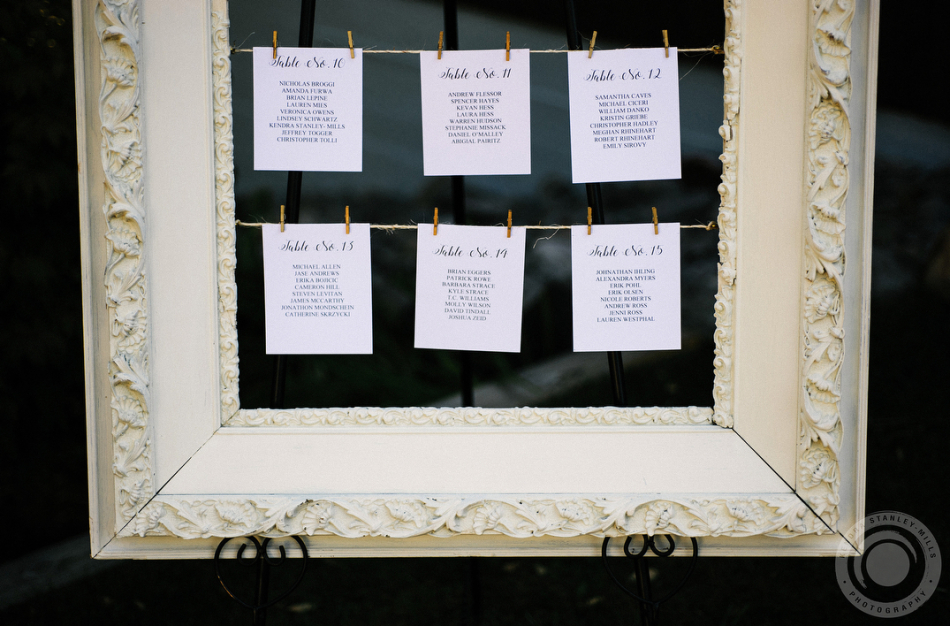 Table No. 10
NICHOLAS BROGGI
AMANDA FURWA
BRIAN LEPINE
LAUREN MIES
VERONICA OWENS
LINDSEY SCHWARTZ
KENDRA STANLEY- MILLS
JEFFREY TOOGER
CHRISTOPHER TOLLI
Table No. 11
ANDREW FLESSOR
SPENCER HAYES
KEVAN HESS
LAURA HESS
WARREN HUDSON
STEPHANIE MISSACK
DANIEL O'MALLEY
ABIGIAL PAIRITZ
Table No. 12
SAMANTHA CAVES
MICHAEL CICERI
WILLIAM DANKO
KRISTIN GRIEBE
CHRISTOPHER HADLEY
MEGHAN RHINEHART
ROBERT RHINEHART
EMILY SIROVY
Table No. 13
MICHAEL ALLEN
JASE ANDREWS
ERIKA BOJICIC
CAMERON HILL
STEVEN LEVITAN
JAMES MCCARTHY
JONATHON MONDSCHEIN
CATHERINE SKRZYCKI
Table No. 14
BRIAN EGGERS
PATRICK ROWE
BARBARA STRACE
KYLE STRACE
T.C. WILLIAMS
MOLLY WILSON
DAVID TINDALL
JOSHUA ZEID
Table No. 15
JOHNATHAN IHLING
ALEXANDRA MYERS
ERIK POHL
ERIK OLSEN
NICOLE ROBERTS
ANDREW ROSS
JENNI ROSS
LAUREN WESTPHAL
STANLEY-MILLS
• PHOTOGRAPHY •